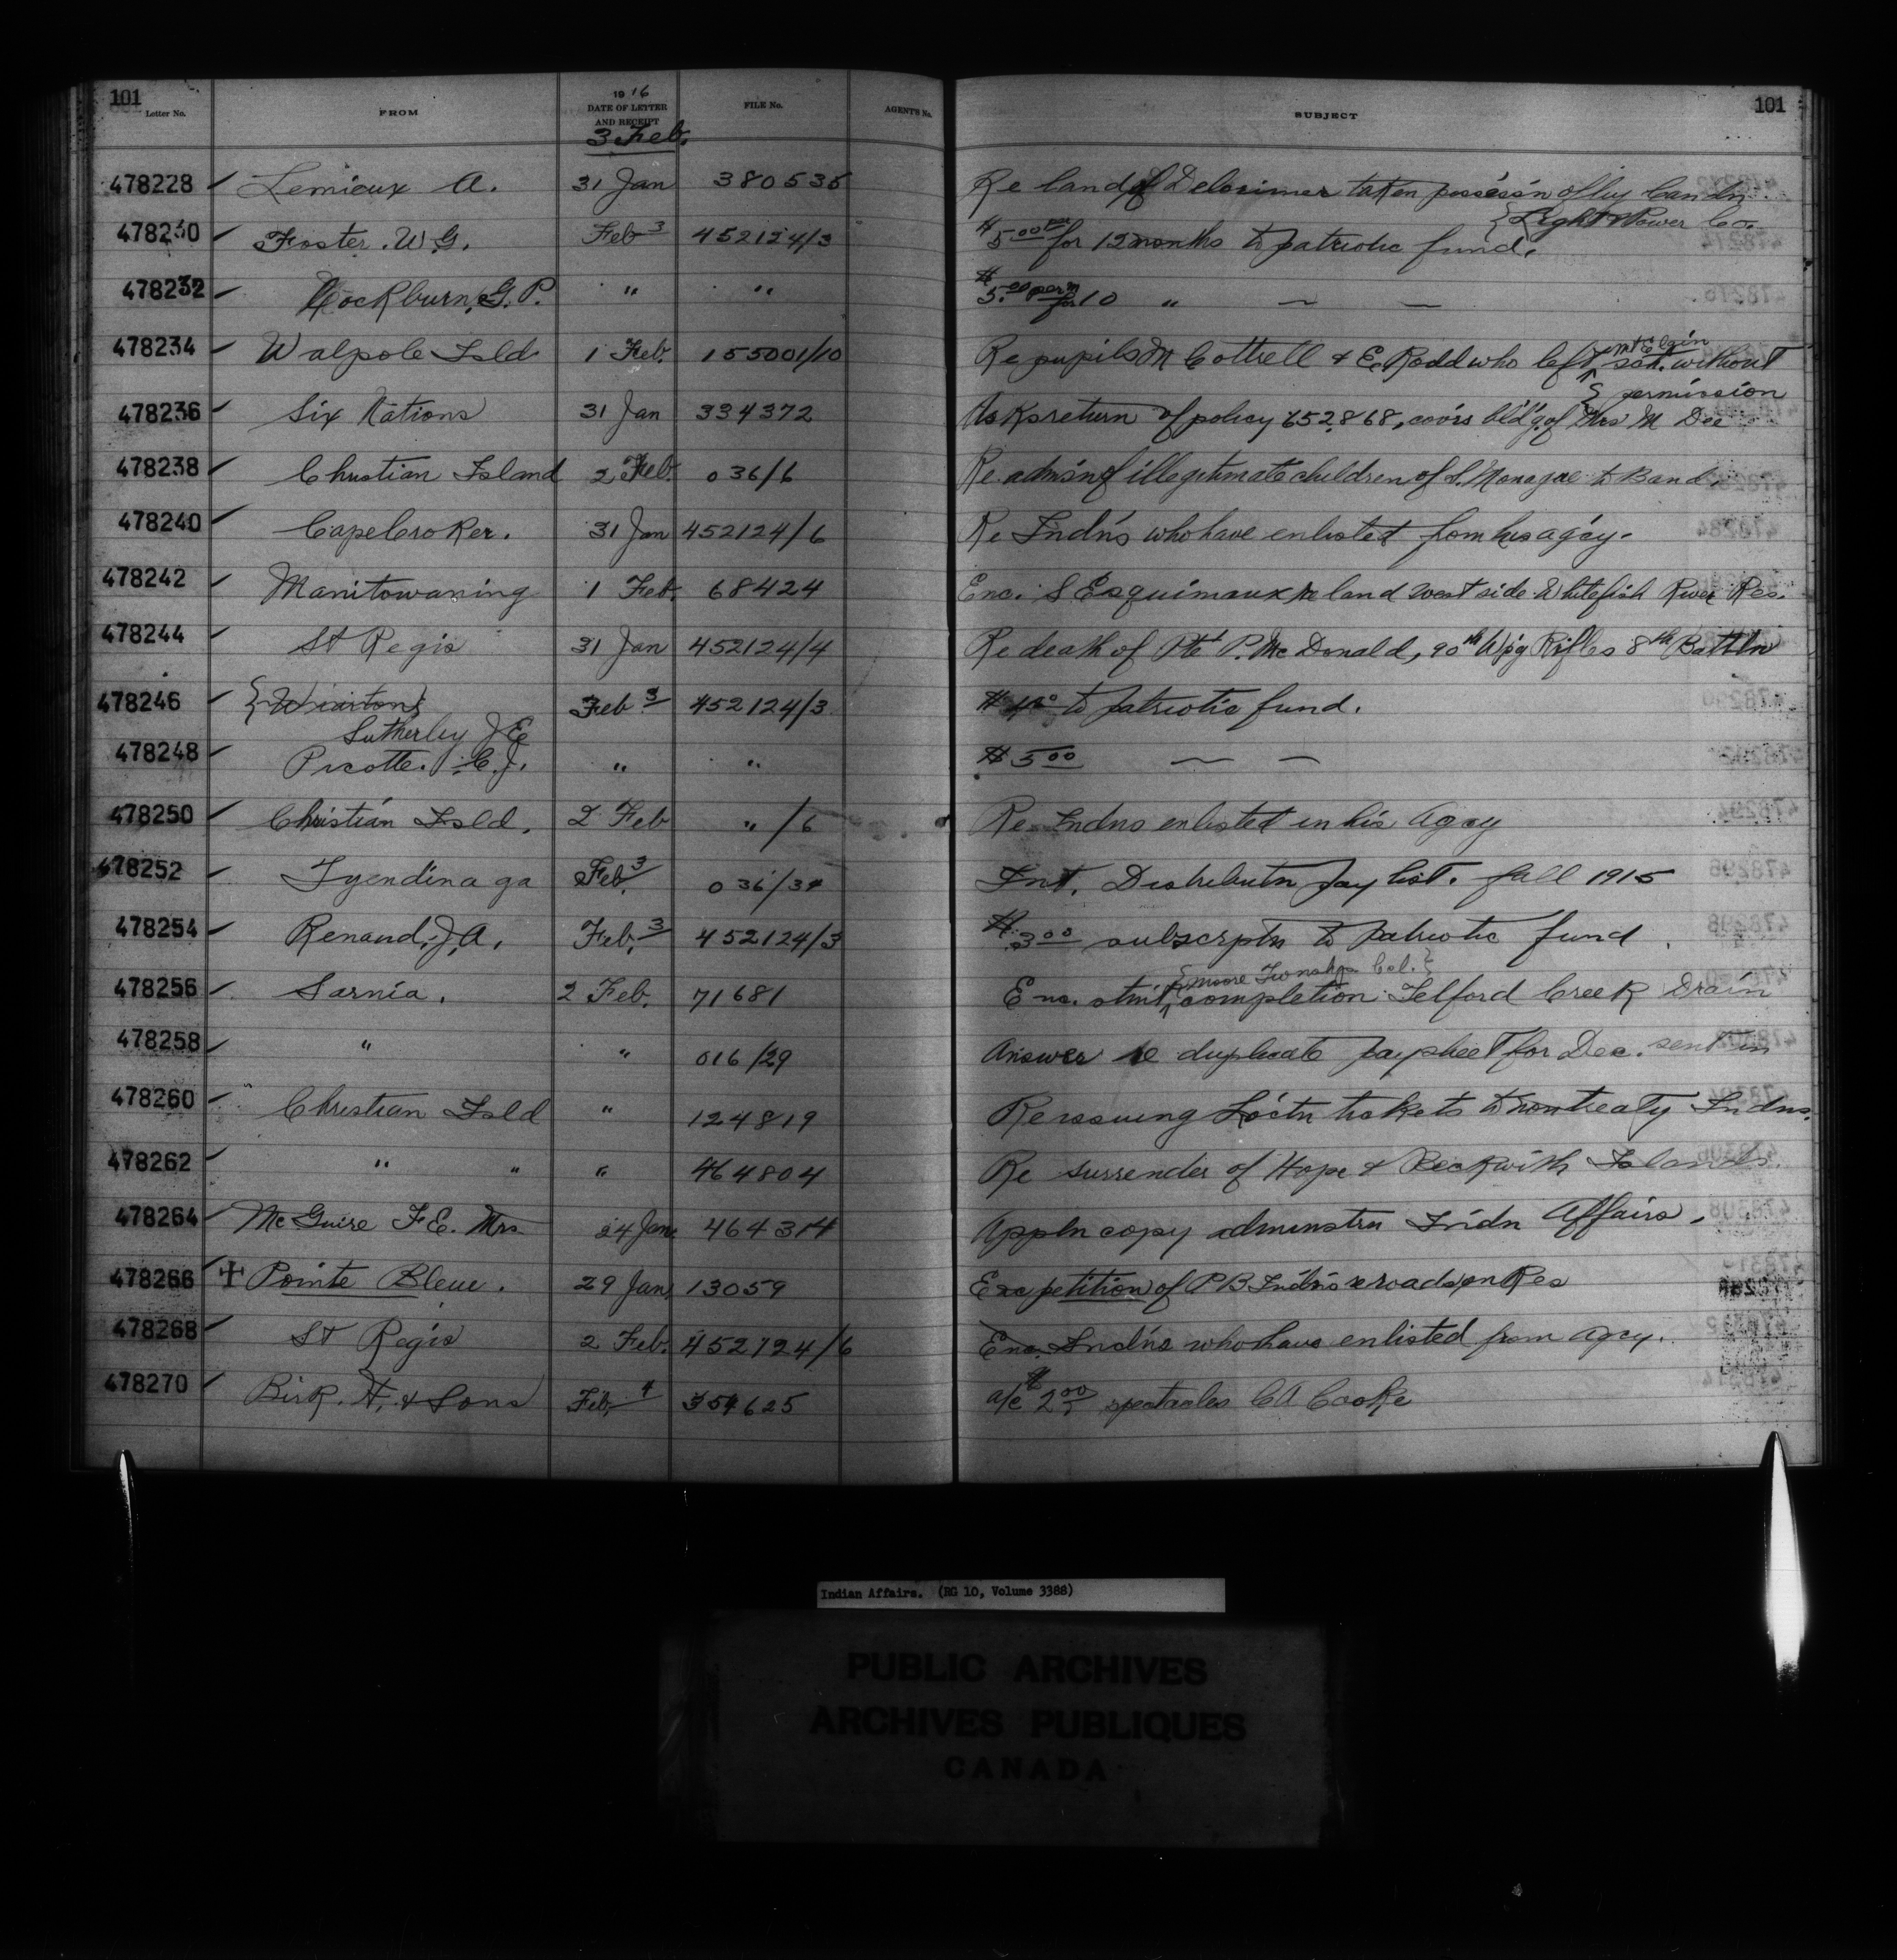 101
101
Letter No.
FROM
1916
DATE OF LETTER
AND RECEIPT
FILE No.
AGENT'S No.
SUBJECT
3 Feb.
478228 Lemieux A. 31 Jan 380535 Re land of Delorimer taken possess'n of by Can dn.
{Light & Power Co.
478230 Foster. W.G. Feb 3 452124/3 $5.00 for 12 months to patriotic fund.
478232 Cockburn, G. P. " " $5.00 per m for 10 " — —
478234 Walpole Isld 1 Feb. 155001/10 Re pupils M Cottrell & E. Rodd who left Mt Elgin sch. without
{ permission
478236 Six Nations 31 Jan 334372 Asks return of policy 652868, cov'rs bld'g of Mrs M Dee
478238 Christian Island 2 Feb. 036/6 Re admsn of illegitimate children of S. Monague to Band.
478240 Cape Croker. 31 Jan 452124/6 Re Indn's who have enlisted from his ag'cy.
478242 Manitowaning 1 Feb. 68424 Enc. S Esquimaux re land west side Whitefish River Res.
478244 St Regis 31 Jan 452124/4 Re death of Pte P. McDonald, 90th W'pg Rifles 8th Battln
478246 {Wiarton} Feb 3 452124/3 $ to patriotic fund.
Sutherley J E
478248 Picotte. C. J. " " $5.00 — —
478250 Christian Isld. 2 Feb " /6 Re Indns enlisted in his Agcy
478252 Tyendinaga Feb. 3 036/34 Int. Distributn Pay list. fall 1915
478254 Renaud, J. A. Feb. 3 452124/3 $3.00 subscrptn to Patriotic fund.
{Moore Townshp Col.}
478256 Sarnia. 2 Feb. 71681 Enc. stmt completion Telford Creek Drain
478258 " " 016/29 Answer re duplicate paysheet for Dec. sent in
478260 Christian Isld " 124819 Re issuing Loc'tn tickets to non treaty Indns.
478262 " " " 464804 Re surrender of Hope & Beckwith Islands.
478264 McGuire F E. Mrs 24 Jan. 464314 Appln copy adminstrn Indn Affairs.
478266 Pointe Bleue. 29 Jan 13059 Enc petition of P B Indn's re roads on Res
478268 St Regis 2 Feb. 452124/6 Enc. Indn's who have enlisted from agcy.
478270 Birk. H. & Sons Feb. 4 354625 a/c $2.00 spectacles C A Cooke
Indian Affairs. (RG 10, Volume 3388)
PUBLIC ARCHIVES
ARCHIVES PUBLIQUES
CANADA